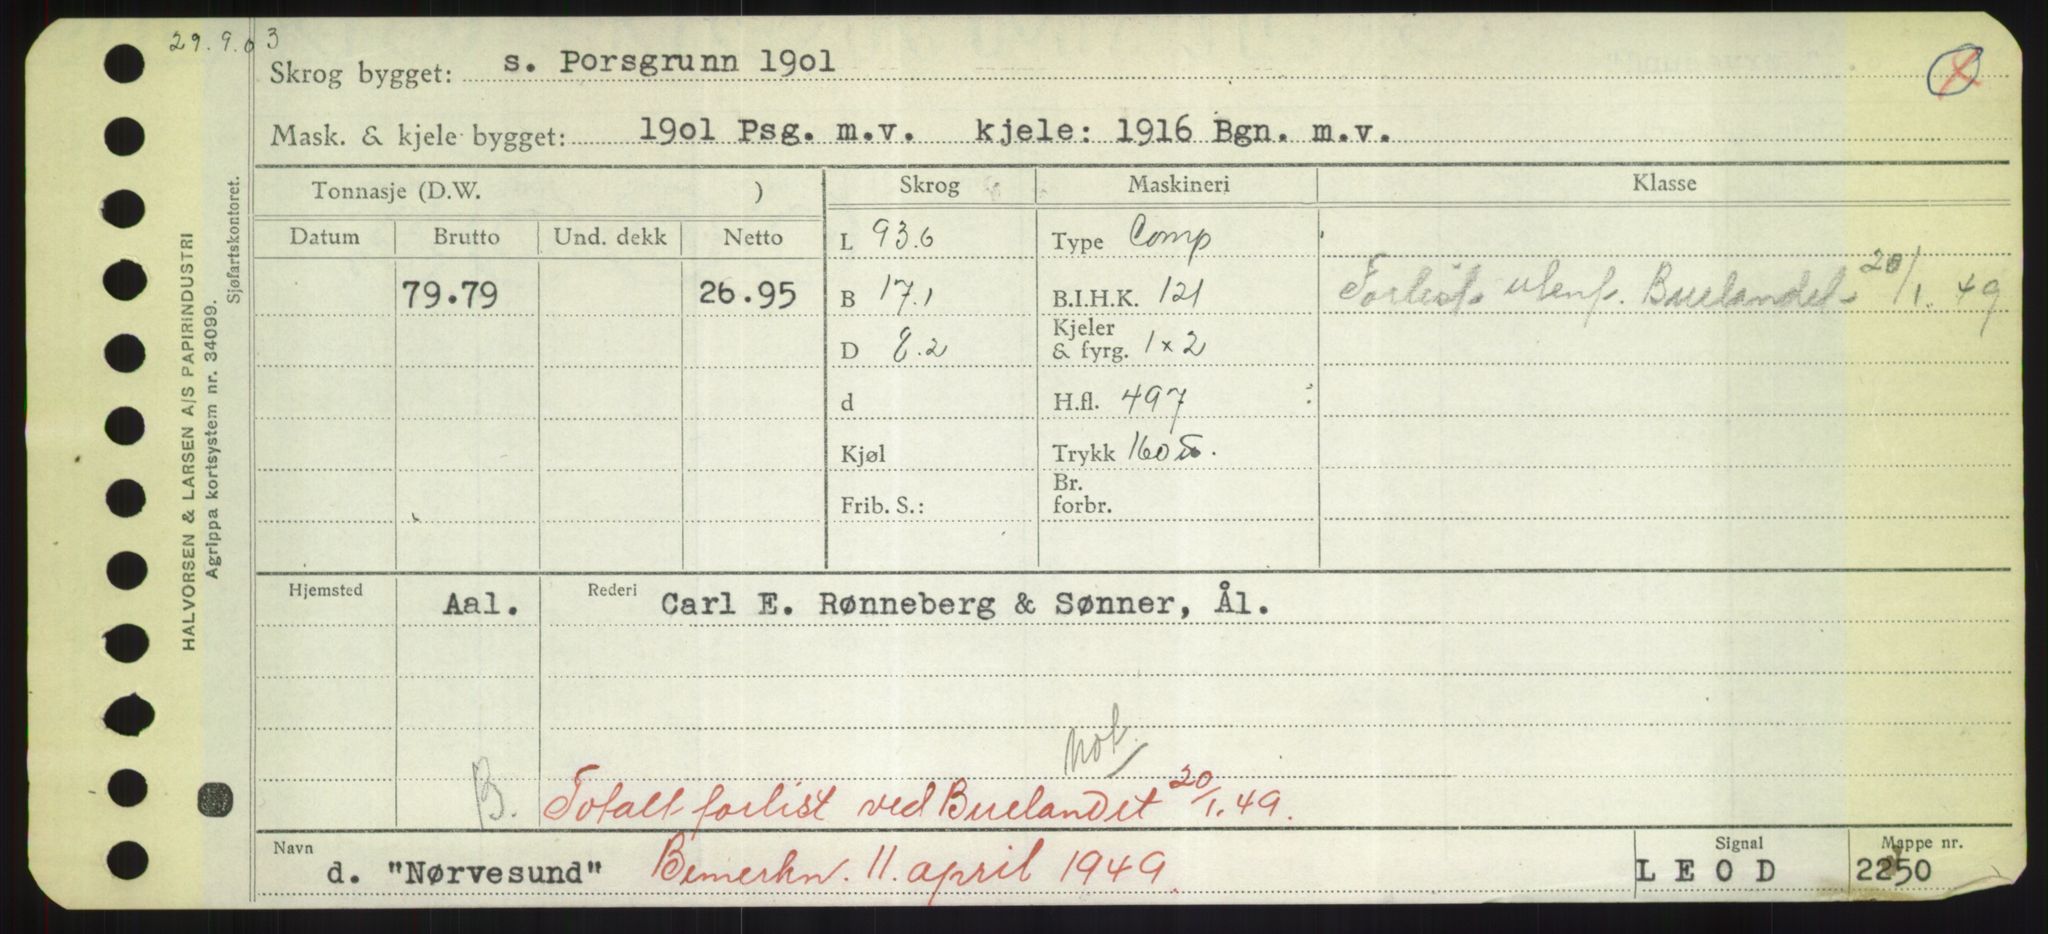 29.9.03
Skrog bygget: s. Porsgrunn 19o1
Mask. & kjele bygget: 19o1 Psg. m.v. kjele: 1916 Bgn. m.v.
Tonnasje (D.W. ) Skrog Maskineri Klasse
Datum Brutto Und. dekk Netto L 93.6 Type Comp
79.79 26.95 B 17.1 B.I.H.K. 121 Forlist utenf. Buelandet 20/1. 49
D 8.2 Kjeler & fyrg. 1x2
d H.fl. 497
Kjøl Trykk 160
Frib. S.: Br. forbr.
Hjemsted Aal. Rederi Carl E. Rønneberg & Sønner, Ål.
not.
B. Totalt forlist ved Buelandet 20/1.49.
Navn d. "Nørvesund" Bemerkn. 11. april 1949. Signal L E O D Mappe nr. 2250
HALVORSEN & LARSEN A/S PAPIRINDUSTRI
Agrippa kortsystem nr. 34099.
Sjøfartskontoret.